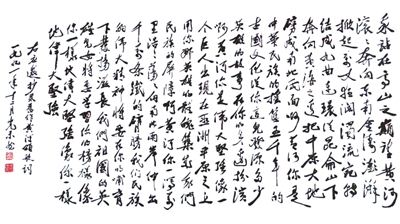 我站在高山之巅望黄河
滚滚奔向东南金涛澎湃
掀起万丈狂澜浊流宛转
结成九曲连环从昆仑山下
奔向黄海之边把中原大地
劈成南北两面啊黄河你是
中华民族的摇篮五千年的
古国文化从你这发源多少
英雄的故事在你的身边扮演
啊黄河你是伟大坚强像一
个巨人出现在亚洲平原之上
用你那英雄的体魄筑成我们
民族的屏障啊黄河你一泻万
里浩浩荡荡向南北两岸伸出
千万条铁的臂膀我们民族
的伟大精神将要在你的哺育
下发扬滋长我们祖国的英
雄儿女将要学习你的榜样像
你一样的伟大坚强像你一样
的伟大坚强
黄河颂歌词
一九九一年十月